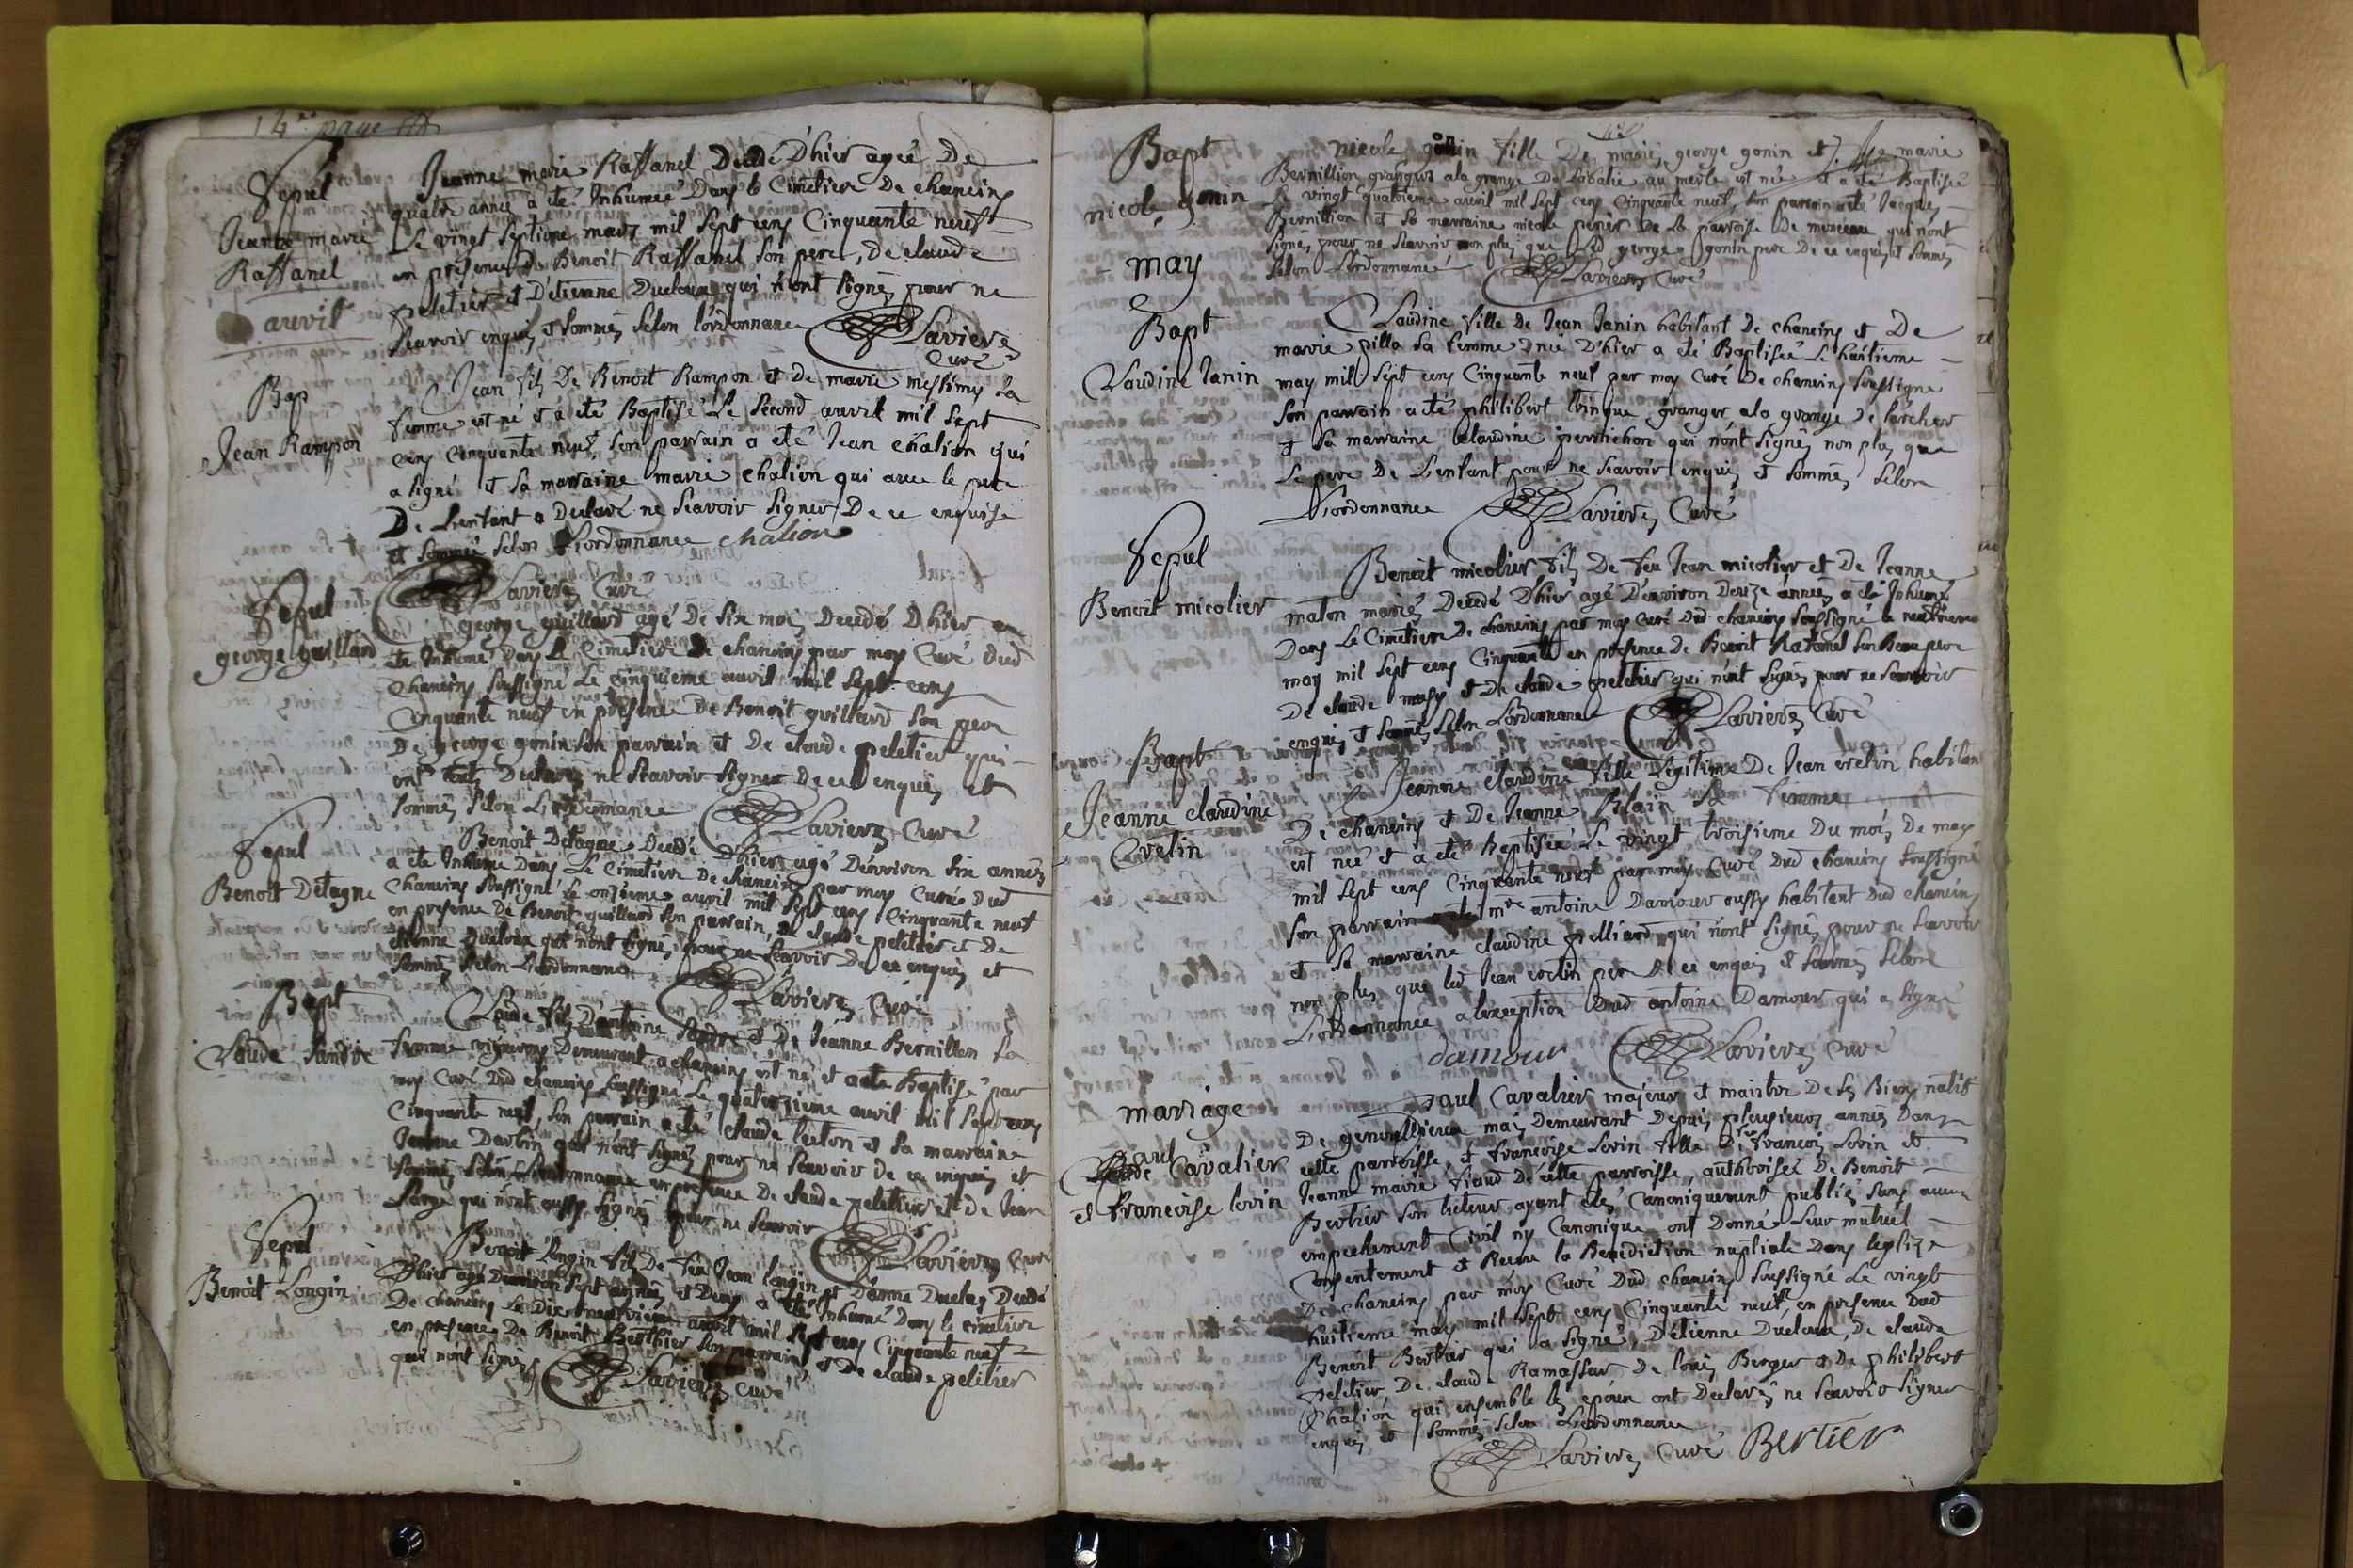 14e page
Sepul
Jeanne marie
Raffanel
Jeanne marie Raffanel Decedé D'hier agée De
quatre année a été Inhumée Dans le Cimetiere De chanein
Le vingt septieme mars mil sept cens Cinquante neuf
en présence De Benoit Raffanel son pere, De claude
peletier et D'étienne Ducloux qui n'ont signés pour ne
scavoir enquis et sommés selon l'ordonnance Laviere
Curé
auvil
Bap
Jean Rampon
Jean fils De Benoit Rampon et De marie messimy sa
femme est né et a été Baptisé Le second auvril mil sept
cens cinquante neuf, son parrain a été Jean chalion qui
a signé et sa marraine marie chalion qui avec le pere
De L'enfant a Declaré ne scavoir signer De ce enquise
et sommée selon L'ordonnance chalion
Laviere Curé
Sepul
george guillard
george guillard agé De six mois Decedé D'hier a
été Inhumé Dans le Cimetiere De chaneins par moy Curé Dud
chaneins soussigné Le cinquieme auvil mil sept cens
Cinquante neuf en présence De Benoit guillard son pere
De george gonin son parrain et De claude peletier qui
ont tous Declarés ne scavoir signer De ce enquis et
sommés selon L'ordonnance Laviere Curé
Sepul
Benoit Détagne
Benoit Détagne Decedé D'hier agé D'environ six années
a été Inhumé Dans Le Cimetiere De chaneins par moy Curé Dud
chaneins soussigné Le onzieme auvil mil sept cens Cinquante neuf
en presence De Benoit guillard son parrain, De claude peletier et De
étienne Ducloux qui n'ont signés pour ne scavoir De ce enquis et
sommés selon L'ordonnance
Laviere Curé
Bapt
Claude Sandre
Claude fils D'antoine Sandre et De Jeanne Bernillon sa
femme vignerons Demeurant a chaneins est né et a été Baptisé par
moy Curé Dud chaneins soussigné Le quatorzieme auvil mil sept cens
Cinquante neuf, son parrain a été claude
et sa marraine
Jeanne Darbin qui n'ont signés pour ne scavoir de ce enquis et
sommés selon L'ordonnance en présence De claude peletier et de Jean
Large qui n'ont aussy signés pour ne scavoir
Laviere Curé
Sepul
Benoit Longin
Benoit Longin fils De feu Jean longin et D'anne Duclos Decedé
D'hier agé D'environ sept années et Demy a été Inhumé Dans le cimetiere
De chaneins Le Dix neufvieme auvil mil sept cens Cinquante neuf
en presence De Benoit Berthier son parrain et De claude peletier
qui n'ont signés Laviere Curé
Bapt
nicole gonin
nicole gonin fille De mariés george gonin et marie
Bernillion grangers a la grange De Labatie au merle est née et a été Baptisée
Le vingt quatrieme auvil mil sept cens Cinquante neuf, son parrain a été Jacques
Bernillion et sa marraine nicole perier De la parroise De monceau qui n'ont
signés pour ne scavoir non plus que Led george gonin pere De ce enquis et sommés
selon L'ordonnance Laviere Curé
may
Bapt
Claudine Janin
Claudine fille De Jean Janin habitant De chaneins et De
marie pilla sa femme née D'hier a été Baptisée Le huitieme
may mil sept cens Cinquante neuf par moy Curé De chaneins soussigné
son parrain a été philibert tringue granger a la grange De l'archer
et sa marraine claudine perrichon qui n'ont signés non plus que
Le pere De L'enfant pour ne scavoir enquis et sommés selon
L'ordonnance Laviere Curé
Sepul
Benoit micolier
Benoit micolier fils De feu Jean micolier et De Jeanne
maton mariés Decedé D'hier agé D'environ Douze années a été Inhumé
Dans Le Cimetiere De chaneins par moy Curé Dud chaneins soussigné le neufvieme
may mil sept cens Cinquante en présence De Benoit Rafanel son Beau pere
De claude et De claude peletier qui n'ont signés pour ne scavoir
enquis et sommés selon L'ordonnance Laviere Curé
Bapt
Jeanne claudine
Cretin
Jeanne claudine fille Légitime De Jean cretin habitan
De chaneins et De Jeanne Blain sa femme
est née et a été Baptisée Le vingt troisieme Du mois De may
mil sept cens Cinquante neuf par moy Curé Dud chaneins soussigné
son parrain a été mre antoine Damour aussy habitant Dud chaneins
et sa marraine claudine pelliard qui n'ont signés pour ne scavoir
non plus que led Jean cretin pere De ce enquis et sommés selon
L'ordonnance a l'exception Dud antoine Damour qui a signé
damour Laviere Curé
mariage
paul Cavalier
et francoise lovin
paul Cavalier majeur et maistre De ses Biens natif
De genouillieux mais Demeurant Depuis plusieurs années Dans
cette parroisse, et francoise Lovin fille De francois Lovin et
Jeanne marie viaud De cette parroisse, authorisée De Benoit
Bertier son tuteur ayant étés Canoniquement publiés sans aucun
empechement Civil ny Canonique ont Donné Leur mutuel
Consentement et Receu la Benediction nuptiale Dans leglize
De chaneins par moy Curé Dud chaneins soussigné Le vingt
huitieme may mil sept cens Cinquante neuf, en presence Dud
Benoit Bertier qui a signé, D'étienne Ducloux, De claude
peletier, De claude Ramassar De louis Berger et De philibert
Chalion qui ensemble les epoux ont Declarés ne scavoir signer
enquis et sommés selon L'ordonnance
Laviere Curé Bertier